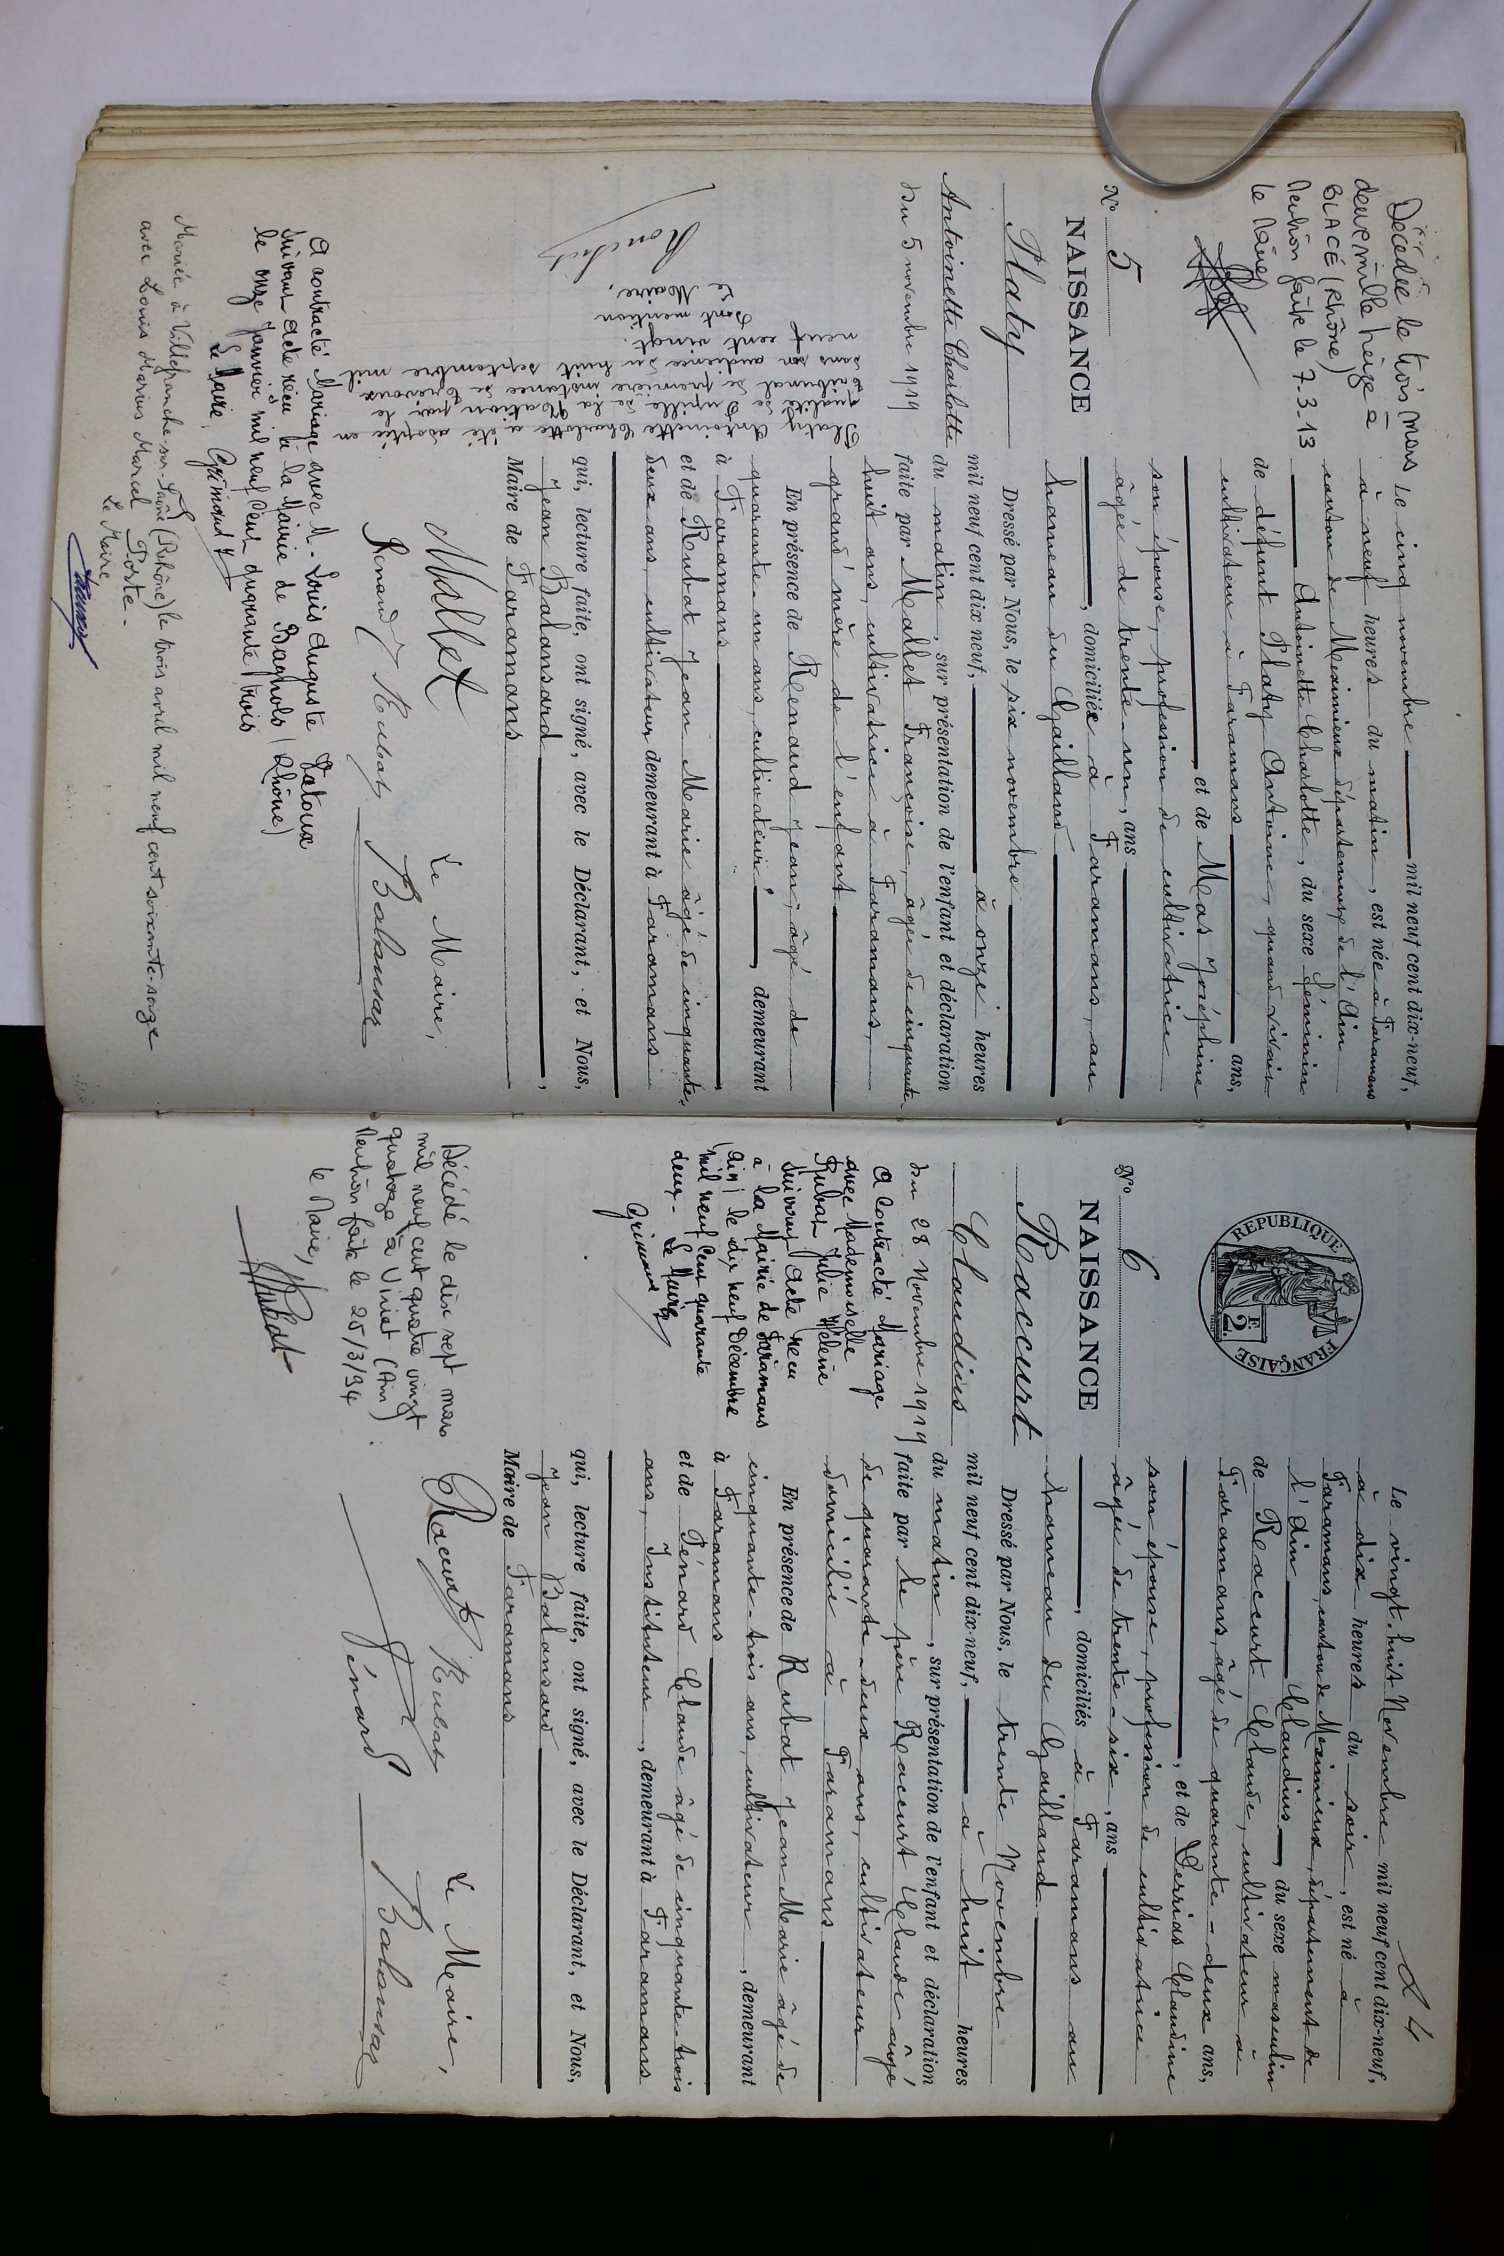 Décédée le trois mars
deux mille treize à
BLACÉ (Rhône)
Mention faite le 7-3-13
Le Maire
N° 5
NAISSANCE
Platy
Antoinette Charlotte
du 5 novembre 1919
Platy Antoinette Charlotte a été adoptée en
qualité de Pupille de la Nation par le
tribunal de première instance de Trévoux
dans son audience du huit septembre mil
neuf cent vingt.
Dont mention
Le Maire,
A contracté Mariage avec M. Louis Auguste Latoux
suivant acte reçu à la Mairie de Bagnols (Rhône)
le onze Janvier mil neuf Cent quarante trois
Le Maire,
Mariée à Villefranche-sur-Saône (Rhône) le trois avril mil neuf cent soixante-seize
avec Louis Marius Marcel Porte -
Le Maire
Le cinq novembre mil neuf cent dix-neuf,
à neuf heures du matin, est née à Faramans
canton de Meximieux département de l'Ain
Antoinette Charlotte, du sexe féminin
de défunt Platy Antoine, quand vivait
cultivateur à Faramans ans,
et de Mas Joséphine
son épouse, profession de cultivatrice
âgée de trente-un, ans
, domiciliée à Faramans, au
hameau du Gaillard
Dressé par Nous, le six novembre
mil neuf cent dix neuf, à onze heures
du matin, sur présentation de l'enfant et déclaration
faite par Mallet Françoise, âgée de cinquante
huit ans, cultivatrice à Faramans,
grand'mère de l'enfant
En présence de Renaud Jean, âgé de
quarante-un ans, cultivateur, demeurant
à Faramans
et de Rubat Jean Marie âgé de cinquante,
deux ans, cultivateur demeurant à Faramans
qui, lecture faite, ont signé, avec le Déclarant, et Nous,
Jean Balansard,
Maire de Faramans
Le Maire,
Mallet
Renaud J Rubat Balansard
24
REPUBLIQUE FRANÇAISE
2F.
N° 6
NAISSANCE
Raccurt
Claudius
du 28 Novembre 1919
A Contracté Mariage
avec Mademoiselle
Rubat Julie Hélène
suivant Acte reçu
à la Mairie de Faramans
(Ain) le dix neuf Décembre
mil neuf Cent quarante
deux - Le Maire
Décédé le dix sept mars
mil neuf cent quatre vingt
quatorze à Viriat (Ain).
Mention faite le 25/3/94
Le Maire,
Le vingt-huit Novembre mil neuf cent dix-neuf,
à dix heures du soir, est né à
Faramans, canton de Meximieux, département de
l'Ain Claudius, du sexe masculin
de Raccurt Claude, cultivateur à
Faramans, âgé de quarante-deux ans,
, et de Perrias Claudine
son épouse, profession de cultivatrice
âgée de trente-six, ans
, domiciliés à Faramans au
hameau du Gaillard
Dressé par Nous, le trente Novembre
mil neuf cent dix-neuf, à huit heures
du matin, sur présentation de l'enfant et déclaration
faite par le père Raccurt Claude âgé
de quarante-deux ans, cultivateur
domicilié à Faramans
En présence de Rubat Jean-Marie âgé de
cinquante-trois ans, cultivateur, demeurant
à Faramans
et de Pénard Claude âgé de cinquante-trois
ans, Instituteur, demeurant à Faramans
qui, lecture faite, ont signé, avec le Déclarant, et Nous,
Jean Balansard
Maire de Faramans
Le Maire,
Raccurt Rubat
Pénard Balansard